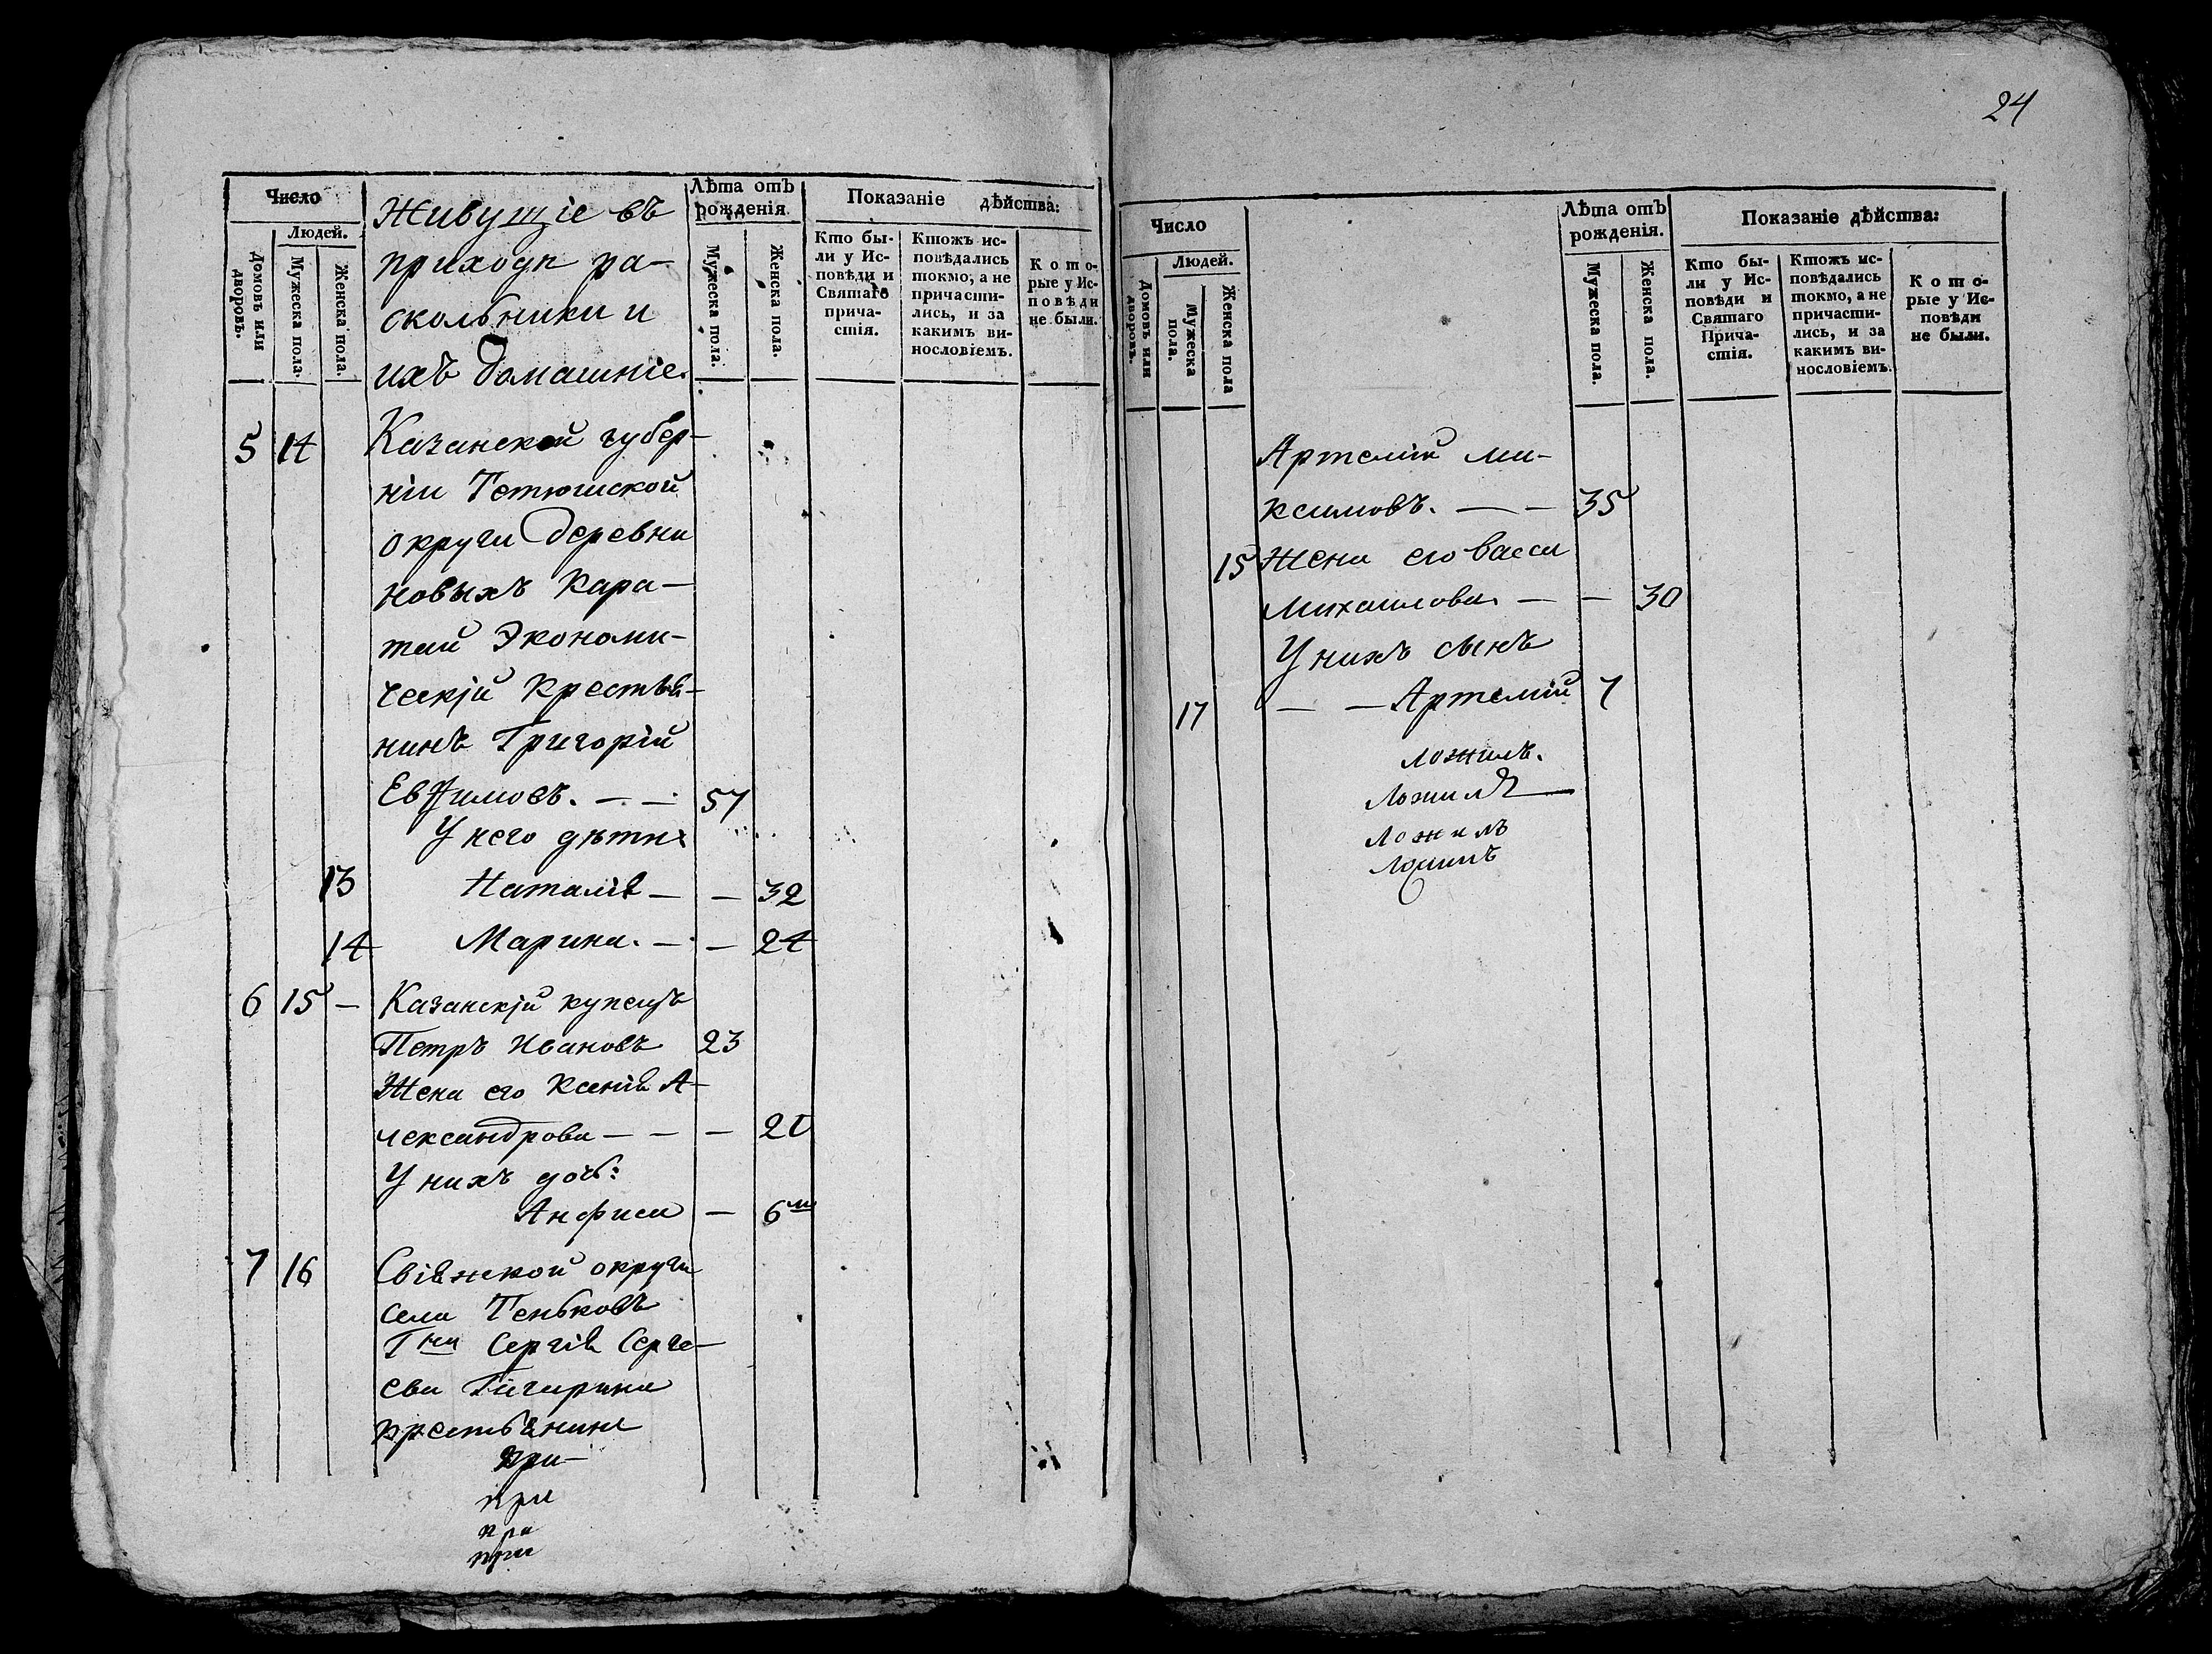 Число
Людей.
Домовъ или дворовъ.
Мужеска пола.
Женска пола.
Живущіе въ
приходѣ ра-
скольники и
ихъ домашніе.
Лѣта отъ рожденія.
Мужеска пола.
Женска пола.
Показаніе дѣйства:
Кто бы-
ли у Ис-
повѣди и
Святаго
прича-
стія.
Ктожъ ис-
повѣдались
токмо, а не
причасти-
лись, и за
какимъ ви-
нословіемъ.
Кото-
рые у Ис-
повѣди
не были.
5 14 Казанской губер-
ніи Тетюшской
округи деревни
новыхъ Кара-
тай Экономи-
ческій крестья-
нинъ Григорій
Евѳимовъ. — — 57
У него дѣти
13 Наталія — — 32
14 Марина. — — 24
6 15 — Казанскій купецъ
Петръ Ивановъ 23
Жена его Ксенія А-
лександрова — — — 20
У нихъ доч:
Анфиса — 6 м
7 16 Свіяжской округи
села Теньковъ
Гна Сергія Серге-
ева Гагарина
крестьянинъ
при-
при
при
при
24
Число
Людей.
Домовъ или дворовъ.
Мужеска пола.
Женска пола
Лѣта отъ
рожденія.
Мужеска пола.
Женска пола.
Показаніе дѣйства:
Кто бы-
ли у Ис-
повѣди и
Святаго
Прича-
стія.
Ктожъ ис-
повѣдались
токмо, а не
причасти-
лись, и за
какимъ ви-
нословіемъ.
Кото-
рые у Ис-
повѣди
не были.
Артемій ма-
ксимовъ. — — 35
15 Жена его Васса
Михаилова. — — 30
У нихъ сынъ
17 — — Артемій 7
ложилъ.
Ложилъ
Ложилъ